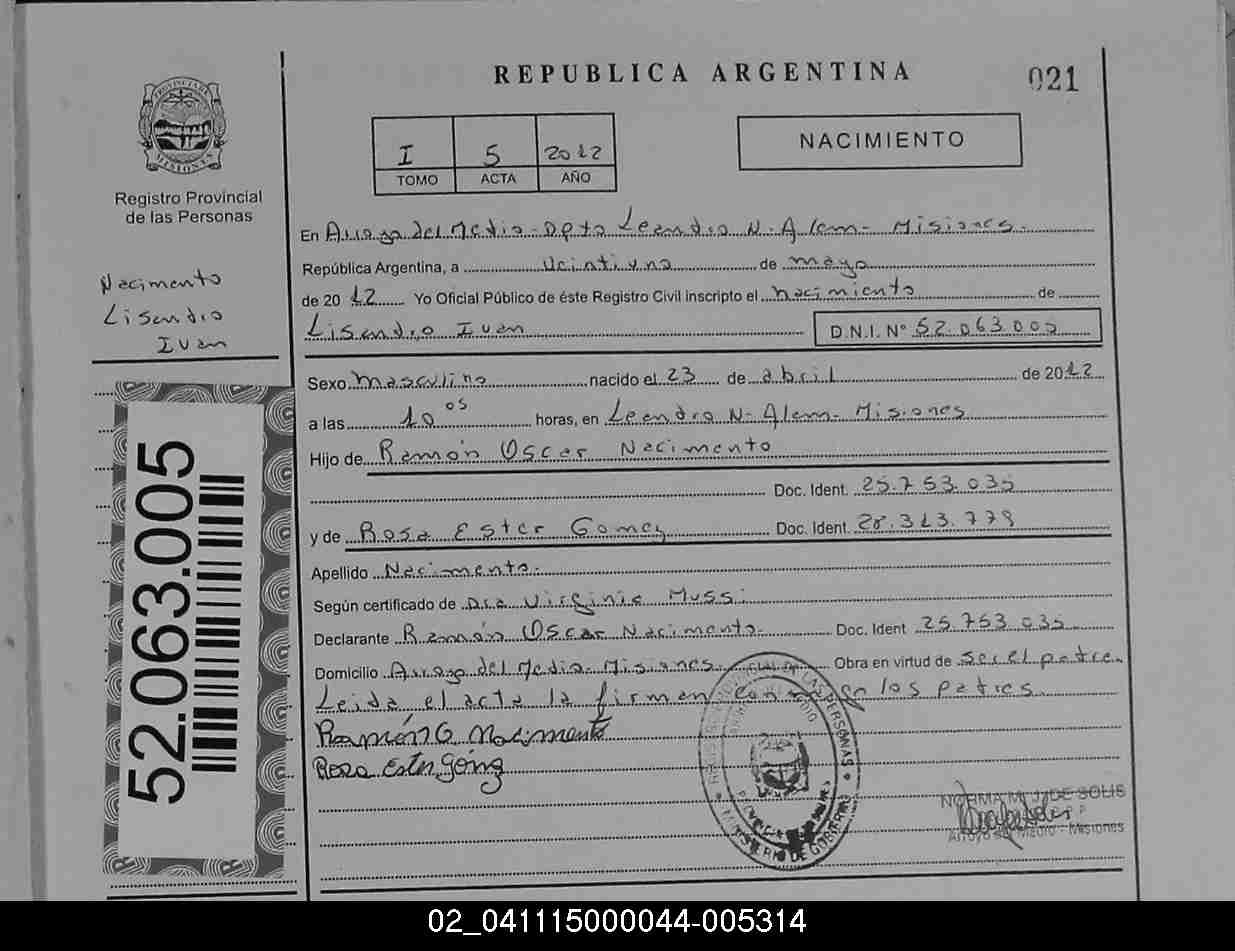 REPUBLICA ARGENTINA
021
PROVINCIA DE MISIONES
Registro Provincial
de las Personas
I 5 2012
TOMO ACTA AÑO
NACIMIENTO
Nacimento
Lisandro
Ivan
52.063.005
En Arroyo del Medio - Dpto Leandro N. Alem - Misiones.
República Argentina, a Veintiuno de mayo
de 2012 Yo Oficial Público de éste Registro Civil inscripto el nacimiento de
Lisandro Ivan D.N.I. N° 52.063.005
Sexo masculino nacido el 23 de abril de 2012
a las 10 05 horas, en Leandro N. Alem - Misiones
Hijo de Ramón Oscar Nacimento
Doc. Ident. 25.753.035
y de Rosa Ester Gomez Doc. Ident. 28.313.779
Apellido Nacimento.
Según certificado de Dra Virginia Mussi
Declarante Ramón Oscar Nacimento Doc. Ident 25.753.035
Domicilio Arroyo del Medio - Misiones Obra en virtud de ser el padre.
Leida el acta la firman los padres
Ramón O Nacimento
Rosa Ester Gómez
MINISTERIO DE GOBIERNO
NORMA M. J. DE SOLIS
Arroyo del Medio - Misiones
02_041115000044-005314